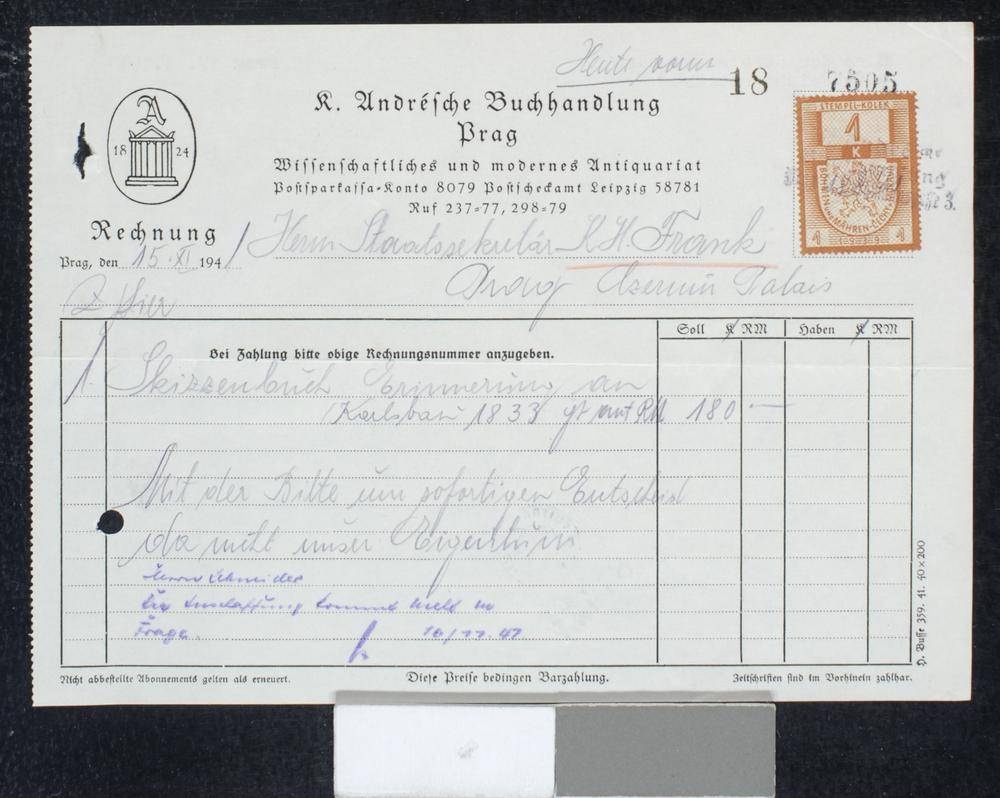 Heute
18 7505
K. Andrésche Buchhandlung
Prag
Wissenschaftliches und modernes Antiquariat
Postsparkassa-Konto 8079 Postscheckamt Leipzig 58781
Ruf 237-77, 298-79
A
18 24
STEMPEL-KOLEK
1
K
BÖHMEN UND MÄHREN
1 1939 1
Rechnung
Prag, den 15. XI 1941
Herrn Staatssekretär K. H. Frank
Prag Czernin Palais
Soll K RM Haben K RM
Bei Zahlung bitte obige Rechnungsnummer anzugeben.
1. Skizzenbuch Erinnerung an
Karlsbad 1833 RM 180 —
Mit der Bitte um sofortigen Entscheid
da nicht unser Eigentum
Herrn Schneider
Die Anschaffung kommt nicht in
Frage. 16/11. 41
D. Busse 359. 41. 40×200
Nicht abbestellte Abonnements gelten als erneuert.
Diese Preise bedingen Barzahlung.
Zeitschriften sind im Vorhinein zahlbar.